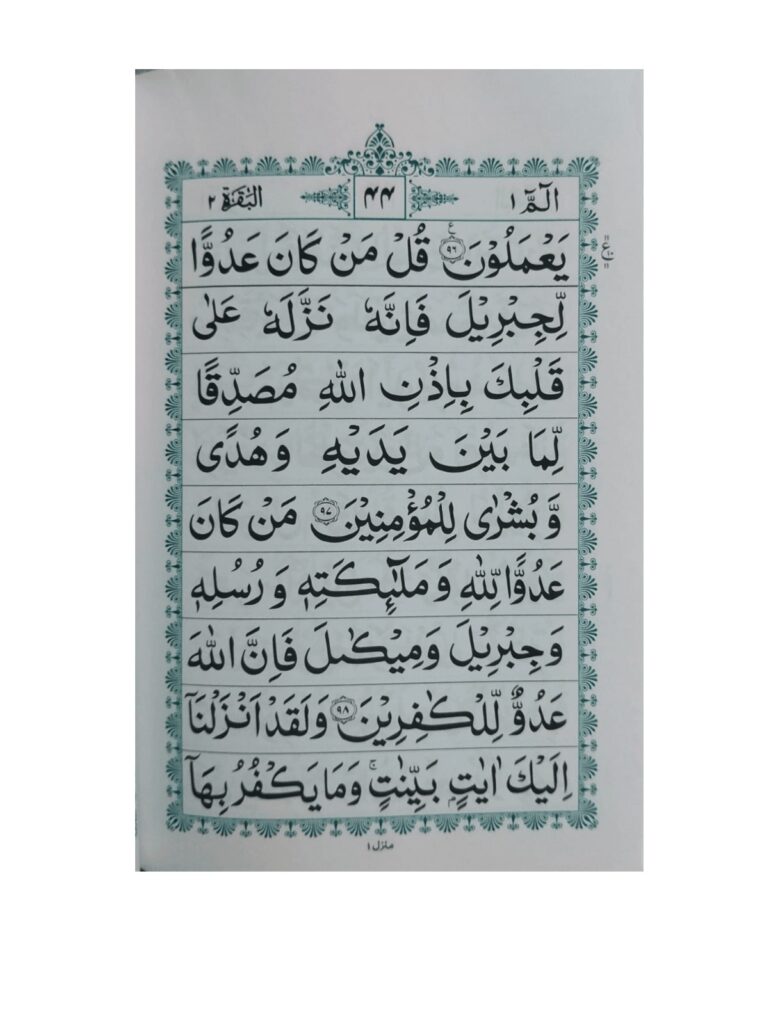 الٓمّٓ ١ ۴۴ البقرة ٢
يَعْمَلُوْنَ ﴿۹۶﴾ قُلْ مَنْ كَانَ عَدُوًّا
لِّجِبْرِيْلَ فَاِنَّهٗ نَزَّلَهٗ عَلٰى
قَلْبِكَ بِاِذْنِ اللّٰهِ مُصَدِّقًا
لِّمَا بَيْنَ يَدَيْهِ وَهُدًى
وَّبُشْرٰى لِلْمُؤْمِنِيْنَ ﴿۹۷﴾ مَنْ كَانَ
عَدُوًّا لِّلّٰهِ وَمَلٰٓئِكَتِهٖ وَرُسُلِهٖ
وَجِبْرِيْلَ وَمِيْكٰىلَ فَاِنَّ اللّٰهَ
عَدُوٌّ لِّلْكٰفِرِيْنَ ﴿۹۸﴾ وَلَقَدْ اَنْزَلْنَاۤ
اِلَيْكَ اٰيٰتٍۭ بَيِّنٰتٍ ۚ وَمَا يَكْفُرُ بِهَاۤ
منزل ١